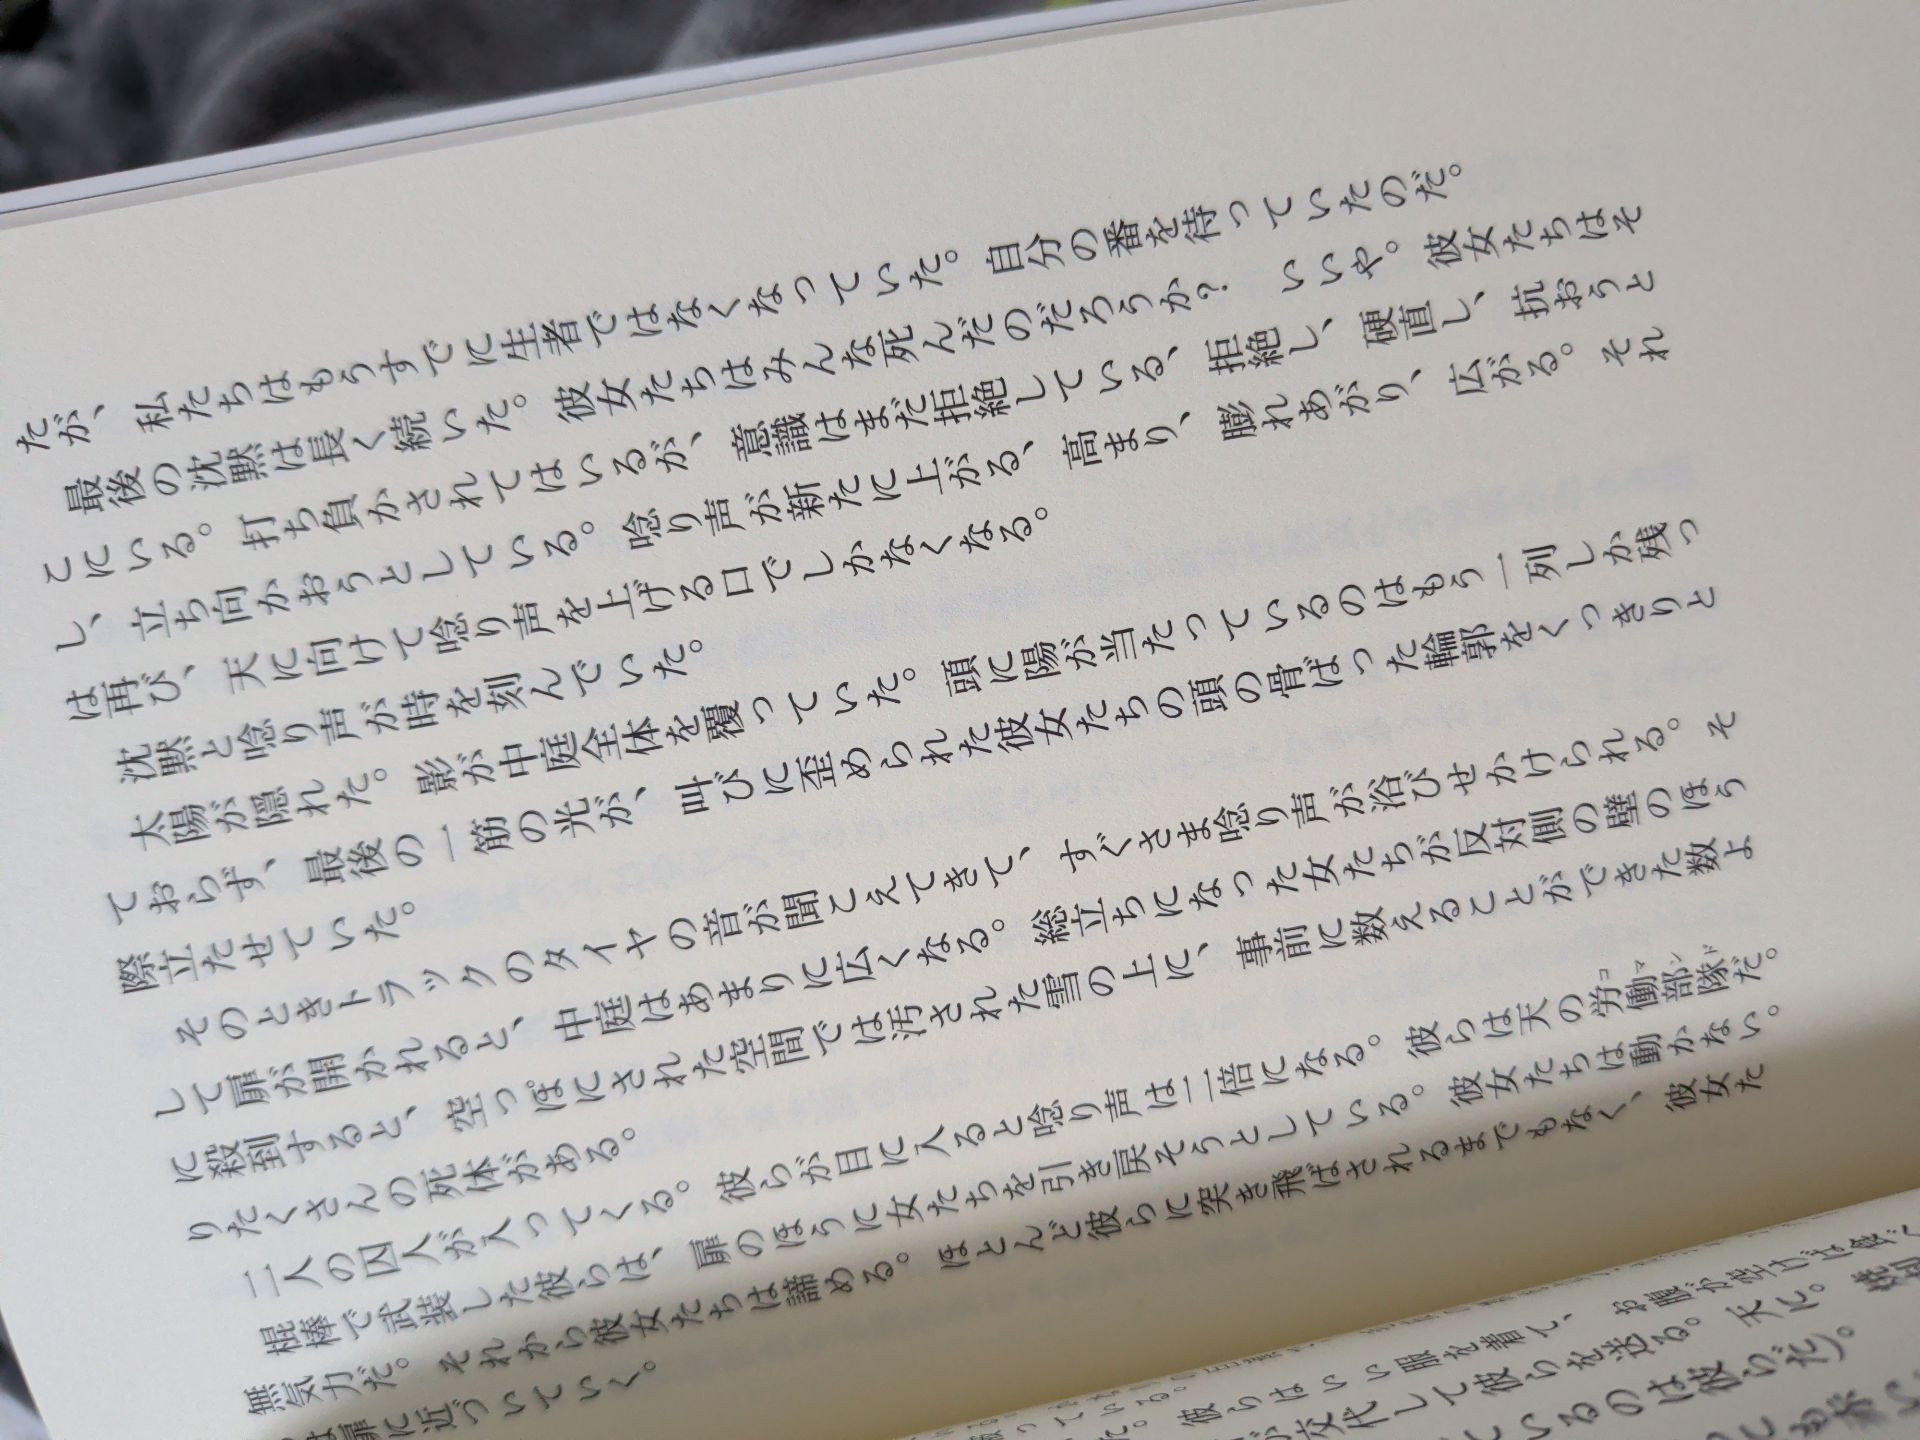 だが、私たちはもうすでに生者ではなくなっていた。自分の番を待っていたのだ。
最後の沈黙は長く続いた。彼女たちはみんな死んだのだろうか？　いいや。彼女たちはそ
こにいる。打ち負かされてはいるが、意識はまだ拒絶している、拒絶し、硬直し、抗おうと
し、立ち向かおうとしている。唸り声が新たに上がる、高まり、膨れあがり、広がる。それ
は再び、天に向けて唸り声を上げる口でしかなくなる。
沈黙と唸り声が時を刻んでいた。
太陽が隠れた。影が中庭全体を覆っていた。頭に陽が当たっているのはもう一列しか残っ
ておらず、最後の一筋の光が、叫びに歪められた彼女たちの頭の骨ばった輪郭をくっきりと
際立たせていた。
そのときトラックのタイヤの音が聞こえてきて、すぐさま唸り声が浴びせかけられる。そ
して扉が開かれると、中庭はあまりに広くなる。総立ちになった女たちが反対側の壁のほう
に殺到すると、空っぽにされた空間では汚された雪の上に、事前に数えることができた数よ
りたくさんの死体がある。
二人の囚人が入ってくる。彼らが目に入ると唸り声は二倍になる。彼らは天の労働部隊だ。
コマンド
棍棒で武装した彼らは、扉のほうに女たちを引き戻そうとしている。彼女たちは動かない。
無気力だ。それから彼女たちは諦める。ほとんど彼らに突き飛ばされるまでもなく、彼女た
は扉に近づいていく。
彼らはいい服を着て、お腹が空けば食べ
交代して彼らを送る。天に。
いるのは彼らだ）。